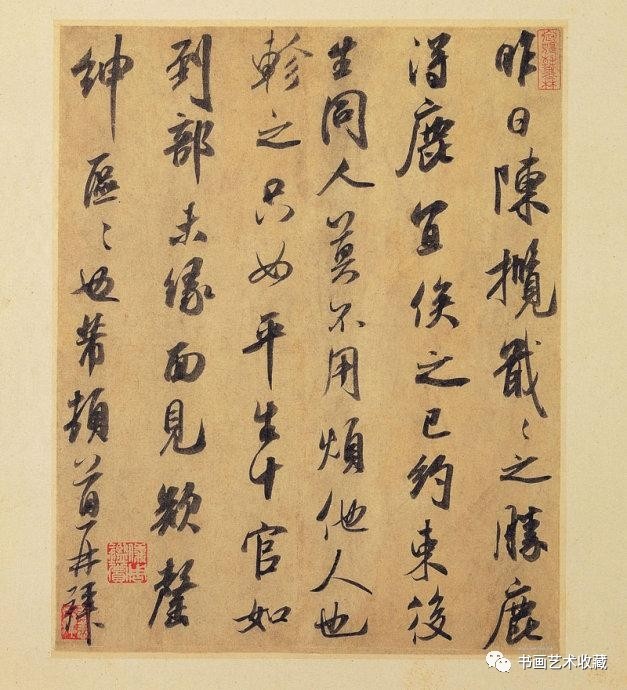 昨日陳攬戢〻之勝鹿
得鹿宜俟之已約束後
生同人莫不用煩他人也
軫之只如平生十官如
到部未緣面見欵罄
紳區〻也芾頓首再拜
书画艺术收藏